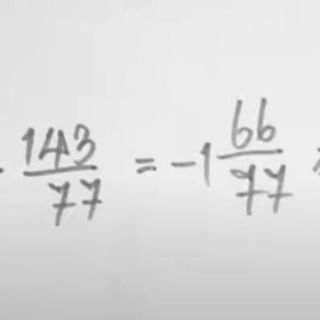 - 143/77 = -1 66/77